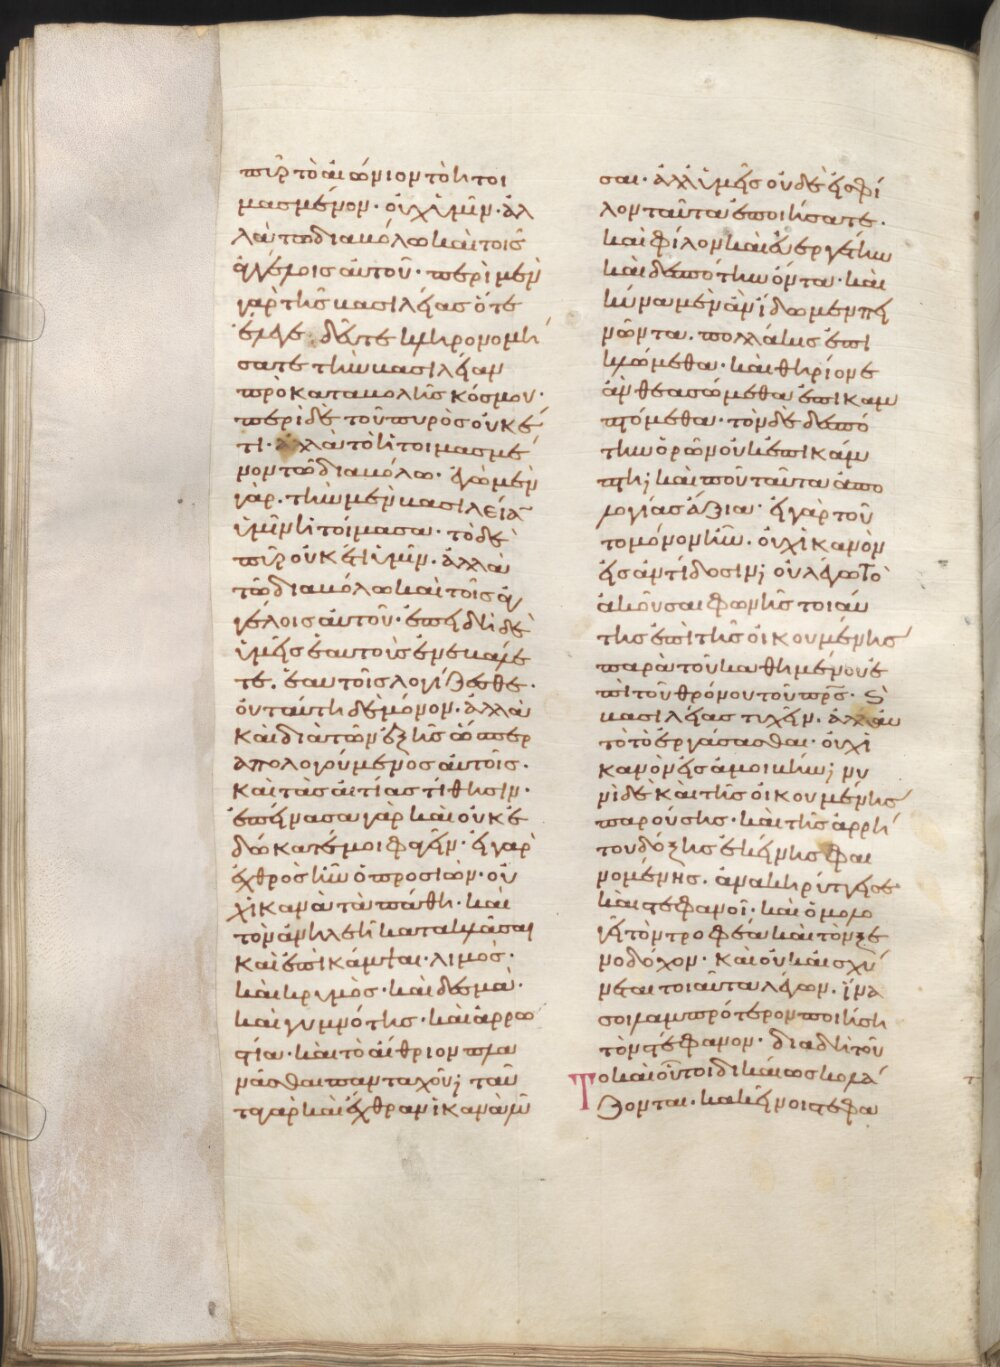 πῦρ τὸ αἰώνιον τὸ ἡτοι
μασμένον· οὐχ ὑμῖν· ἀλ
λὰ τῶ διαβόλω καὶ τοῖς
ἀγγέλοις αὐτοῦ· περὶ μὲν
γὰρ τῆς βασιλείας ὅτε
ἔλεγε· δεῦτε κληρονομή
σατε τὴν βασιλείαν
πρὸ καταβολῆς κόσμου·
περὶ δὲ τοῦ πυρὸς οὐκέ
τι· ἀλλὰ τὸ ἡτοιμασμέ
νον τῶ διαβόλω· ἐγὼ μὲν
γὰρ· τὴν μὲν βασιλείαν
ὑμῖν ἡτοίμασα· τὸ δὲ
πῦρ οὐκέτι ὑμῖν· ἀλλὰ
τῶ διαβόλω καὶ τοῖς ἀγ
γέλοις αὐτοῦ· ἐπειδὴ δὲ
ὑμεῖς ἑαυτοὺς ἐνεβάλε
τε, ἑαυτοῖς λογίζεσθε·
οὐ ταύτη δὲ μόνον· ἀλλὰ
καὶ διὰ τῶν ἑξῆς ὥσπερ
ἀπολογούμενος αὐτοῖς·
καὶ τὰς αἰτίας τίθησιν·
ἐπείνασα γὰρ καὶ οὐκ ἐ
δώκατέ μοι φαγεῖν· εἰ γὰρ
ἐχθρὸς ἦν ὁ προσιών· οὐ
χ ἱκανὰ τὰ πάθη· καὶ
τὸν ἀνηλεῆ κατακλάσαι
καὶ ἐπικάμψαι· λιμὸς·
καὶ κρυμὸς· καὶ δεσμὰ·
καὶ γυμνότης· καὶ ἀρρω
στία· καὶ τὸ αἴθριον πλα
νᾶσθαι πανταχοῦ; ταῦ
τα γὰρ καὶ ἔχθραν ἱκανὰ λῦ
σαι· ἀλλ' ὑμεῖς οὐδὲ εἰς φί
λον ταῦτα ἐποιήσατε·
καὶ φίλον καὶ εὐεργέτην
καὶ δεσπότην ὄντα· καὶ
κύνα μὲν ἂν ἴδωμεν πει
νῶντα, πολλάκις ἐπι
κλώμεθα· καὶ θηρίον ἐ
ὰν θεασώμεθα ἐπικαμ
πτόμεθα· τὸν δὲ δεσπό
την ὁρῶν οὐκ ἐπικάμ
πτη; καὶ ποῦ ταῦτα ἀπο
λογίας ἄξια· εἰ γὰρ τοῦ
το μόνον ἦν· οὐχ ἱκανὸν
εἰς ἀντίδοσιν; οὐ λέγω τὸ
ἀκοῦσαι φωνῆς τοιαύ
της ἐπὶ τῆς οἰκουμένης
παρὰ τοῦ καθημένου ἐ
πὶ τοῦ θρόνου τοῦ πρς· ϗ
βασιλείας τυχεῖν· ἀλλ' αὐ
τὸ τὸ ἐργάσασθαι· οὐχ ἱ
κανὸν εἰς ἀμοιβήν; νυ
νὶ δὲ καὶ τῆς οἰκουμένης
παρούσης· καὶ τῆς ἀρρή
του δόξης ἐκείνης φαι
νομένης· ἀνακηρύττει σε
καὶ στεφανοῖ· καὶ ὁμολο
γεῖ τὸν τροφέα καὶ τὸν ξε
νοδόχον· καὶ οὐκ αἰσχύ
νεται τοιαῦτα λέγων· ἵνα
σοι λαμπρότερον ποιήση
τὸν στέφανον· διαδὴ τοῦ
το καὶ οὗτοι δικαίως κολά
ζονται· κακεῖνοι στεφα